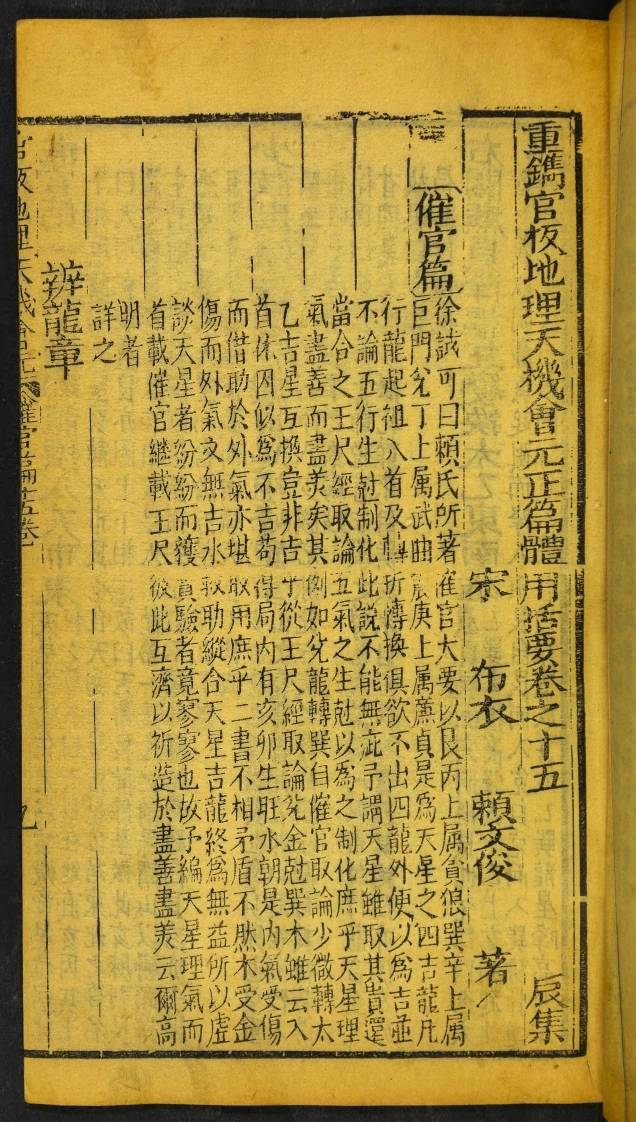 重鐫官板地理天機會元正篇體用括要卷之十五 辰集
宋 布衣 賴文俊 著
催官篇
徐試可曰賴氏所著催官大要以艮丙上属貪狼巽辛上属
巨門兊丁上属武曲震庚上属廉貞是爲天星之四吉龍凡
行龍起祖入首及轉折傳換俱欲不出四龍外便以爲吉並
不論五行生尅制化此説不能無疵予謂天星雖取其貴還
當合之玉尺經取論五氣之生尅以爲之制化庶乎天星理
氣盡善而盡美矣其例如兊龍轉巽自催官取論少微轉太
乙吉星互換豈非吉乎從王尺經取論兊金尅巽木雖云入
首休囚似爲不吉苟得局内有亥卯生旺水朝是内氣受傷
而借助於外氣亦堪取用庶乎二書不相矛盾不然木受金
傷而外氣又無吉水救助縱合天星吉龍終爲無益所以虛
談天星者紛紛而獲真驗者竟寥寥也故予編天星理氣而
首載催官繼載王尺彼此互濟以祈造於盡善盡美云爾高
明者
詳之
辨龍章
官板地理天機會元 催官篇十五卷 九